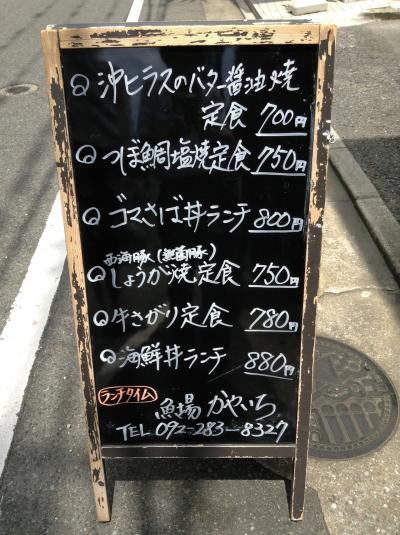 沖ヒラスのバター醤油焼
定食 700円
つぼ鯛塩焼定食 750円
ゴマさば丼ランチ 800円
しょうが焼定食 750円
牛さがり定食 780円
海鮮丼ランチ 880円
ランチタイム
魚場 がやいち
TEL 092-283-8327